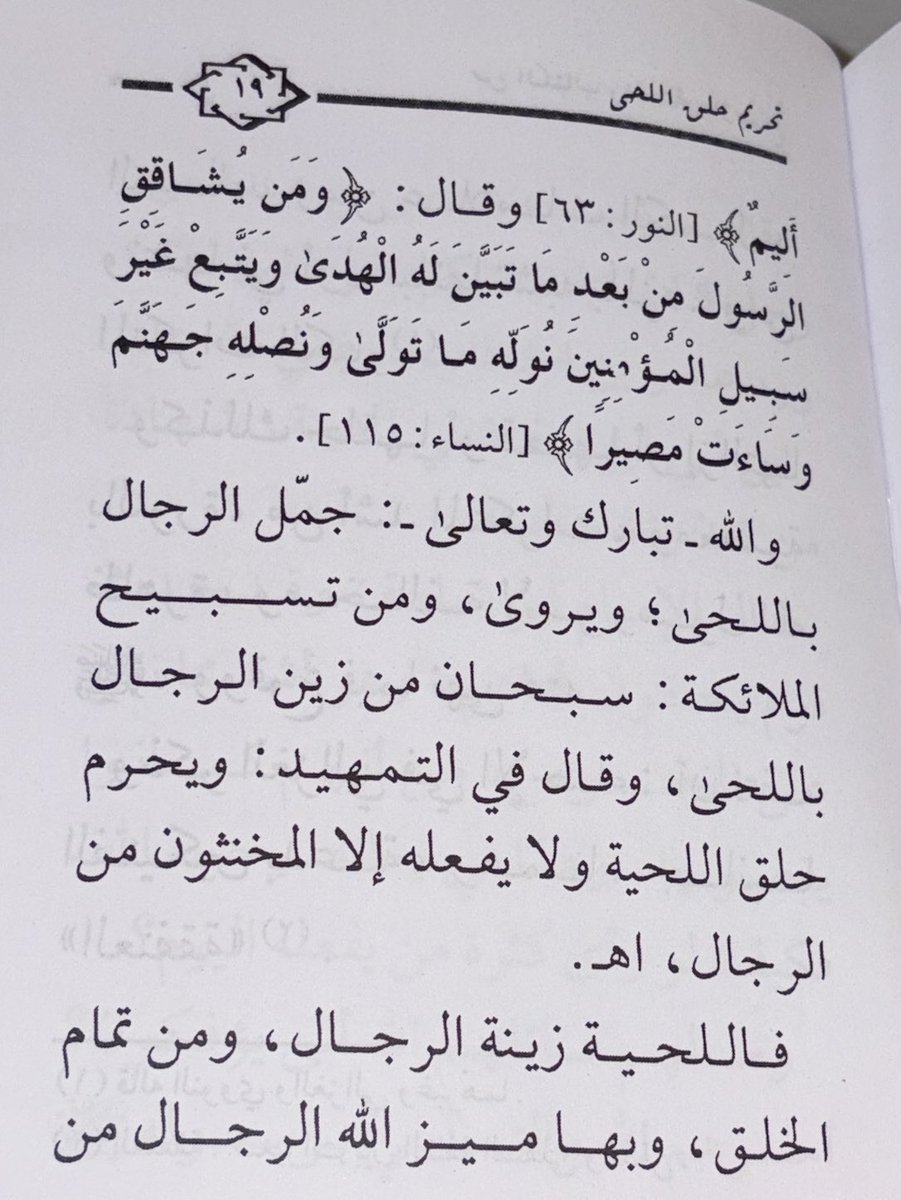 تحريم حلق اللحى
١٩
أَلِيمٌ﴾ [النور: ٦٣] وقال: ﴿وَمَن يُشَاقِقِ
الرَّسُولَ مِنْ بَعْدِ مَا تَبَيَّنَ لَهُ الْهُدَىٰ وَيَتَّبِعْ غَيْرَ
سَبِيلِ الْمُؤْمِنِينَ نُوَلِّهِ مَا تَوَلَّىٰ وَنُصْلِهِ جَهَنَّمَ
وَسَاءَتْ مَصِيرًا﴾ [النساء: ١١٥].
والله ـ تبارك وتعالىٰ ـ: جمّل الرجال
باللحىٰ؛ ويروىٰ، ومن تسبيح
الملائكة: سبحان من زين الرجال
باللحىٰ، وقال في التمهيد: ويحرم
حلق اللحية ولا يفعله إلا المخنثون من
الرجال، اهـ.
فاللحية زينة الرجال، ومن تمام
الخلق، وبها ميز الله الرجال من